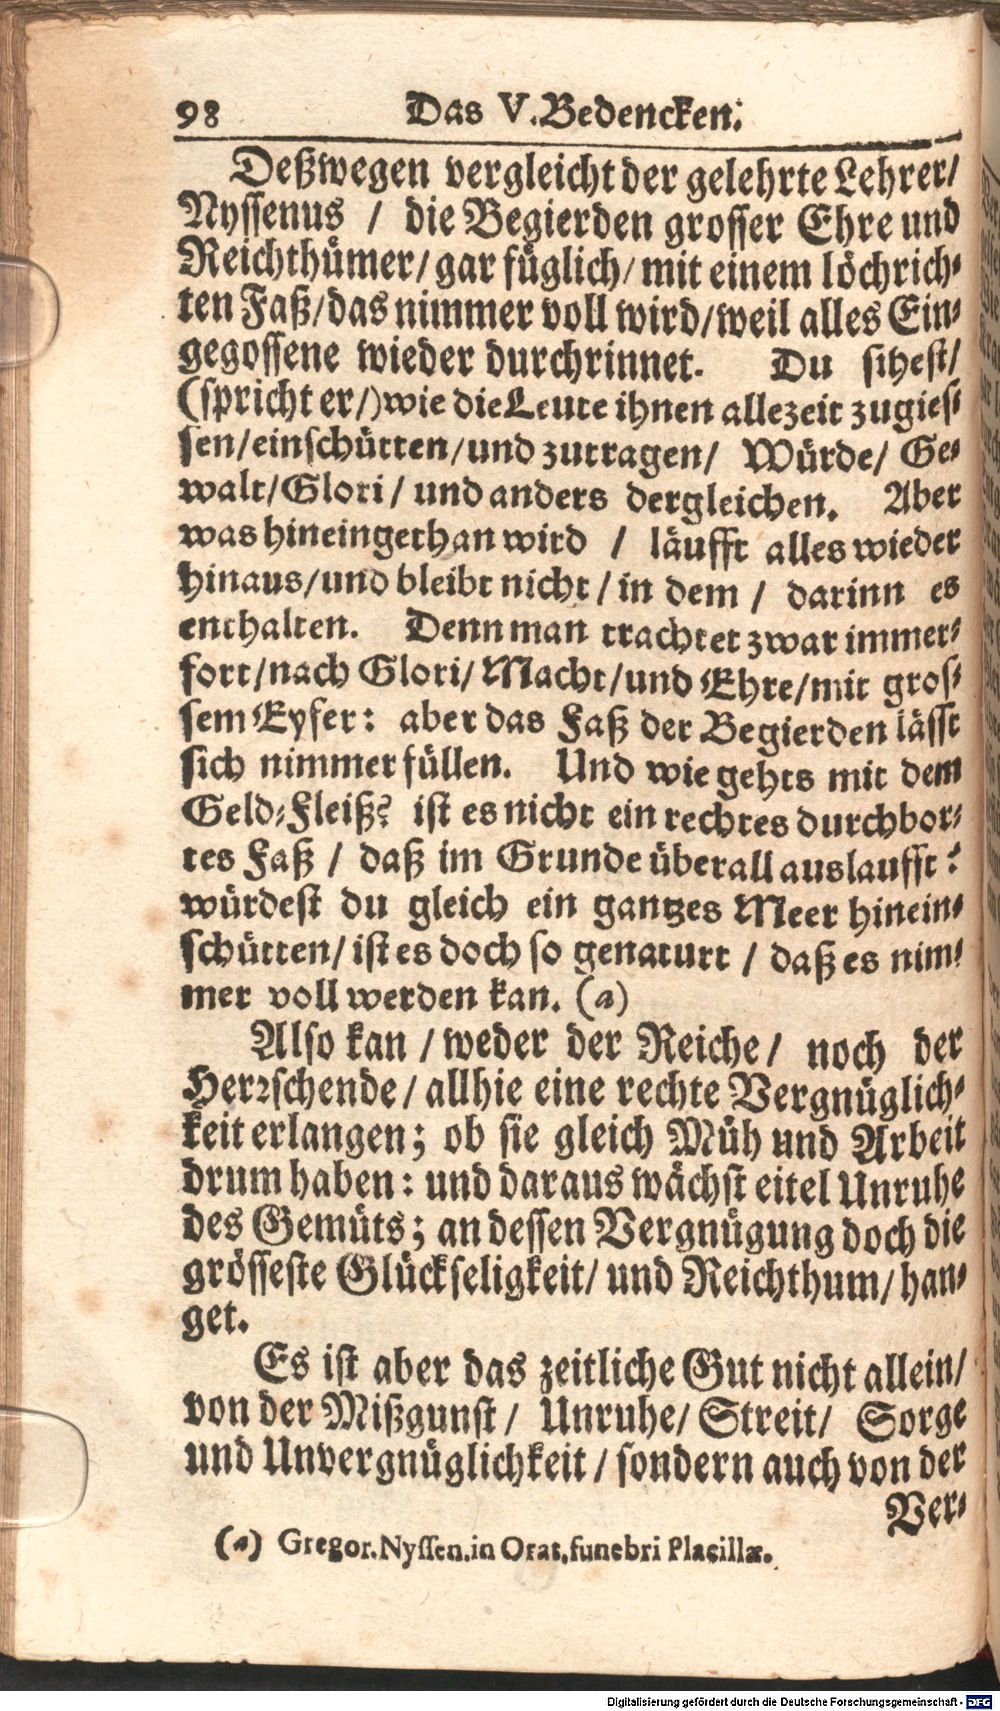 98 Das V. Bedencken.
Deßwegen vergleicht der gelehrte Lehrer/
Nyssenus / die Begierden grosser Ehre und
Reichthümer/ gar füglich/ mit einem löchrich-
ten Faß/ das nimmer voll wird/ weil alles Ein-
gegossene wieder durchrinnet. Du sihest/
(spricht er/) wie die Leute ihnen allezeit zugies-
sen/ einschütten/ und zutragen/ Würde/ Ge-
walt/ Glori/ und anders dergleichen. Aber
was hineingethan wird / läufft alles wieder
hinaus/ und bleibt nicht/ in dem / darinn es
enthalten. Denn man trachtet zwar immer-
fort/ nach Glori/ Macht/ und Ehre/ mit gros-
sem Eyfer: aber das Faß der Begierden lässt
sich nimmer füllen. Und wie gehts mit dem
Geld-Fleiß? ist es nicht ein rechtes durchbor-
tes Faß / daß im Grunde überall auslaufft?
würdest du gleich ein gantzes Meer hinein-
schütten/ ist es doch so genaturt / daß es nim-
mer voll werden kan. (a)
Also kan / weder der Reiche/ noch der
Herꝛschende/ allhie eine rechte Vergnüglich-
keit erlangen; ob sie gleich Müh und Arbeit
drum haben: und daraus wächst eitel Unruhe
des Gemüts; an dessen Vergnügung doch die
grösseste Glückseligkeit/ und Reichthum/ han-
get.
Es ist aber das zeitliche Gut nicht allein/
von der Mißgunst/ Unruhe/ Streit/ Sorge
und Unvergnüglichkeit / sondern auch von der
Ver-
(a) Gregor. Nyssen. in Orat. funebri Placillæ.
Digitalisierung gefördert durch die Deutsche Forschungsgemeinschaft - DFG